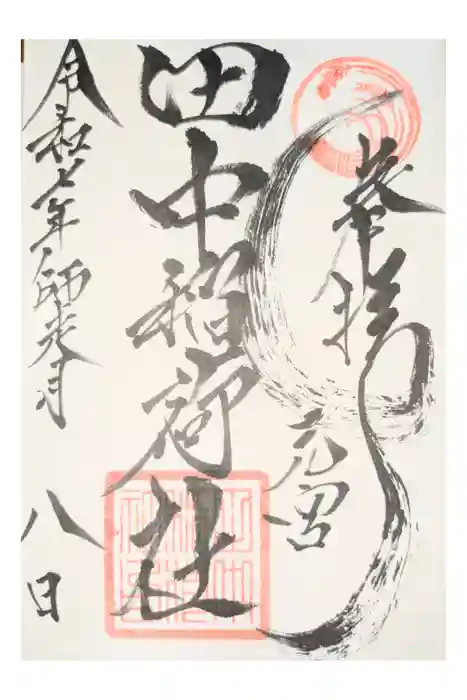 奉拝
元宮
田中稲荷社
令和七年師走月
八日